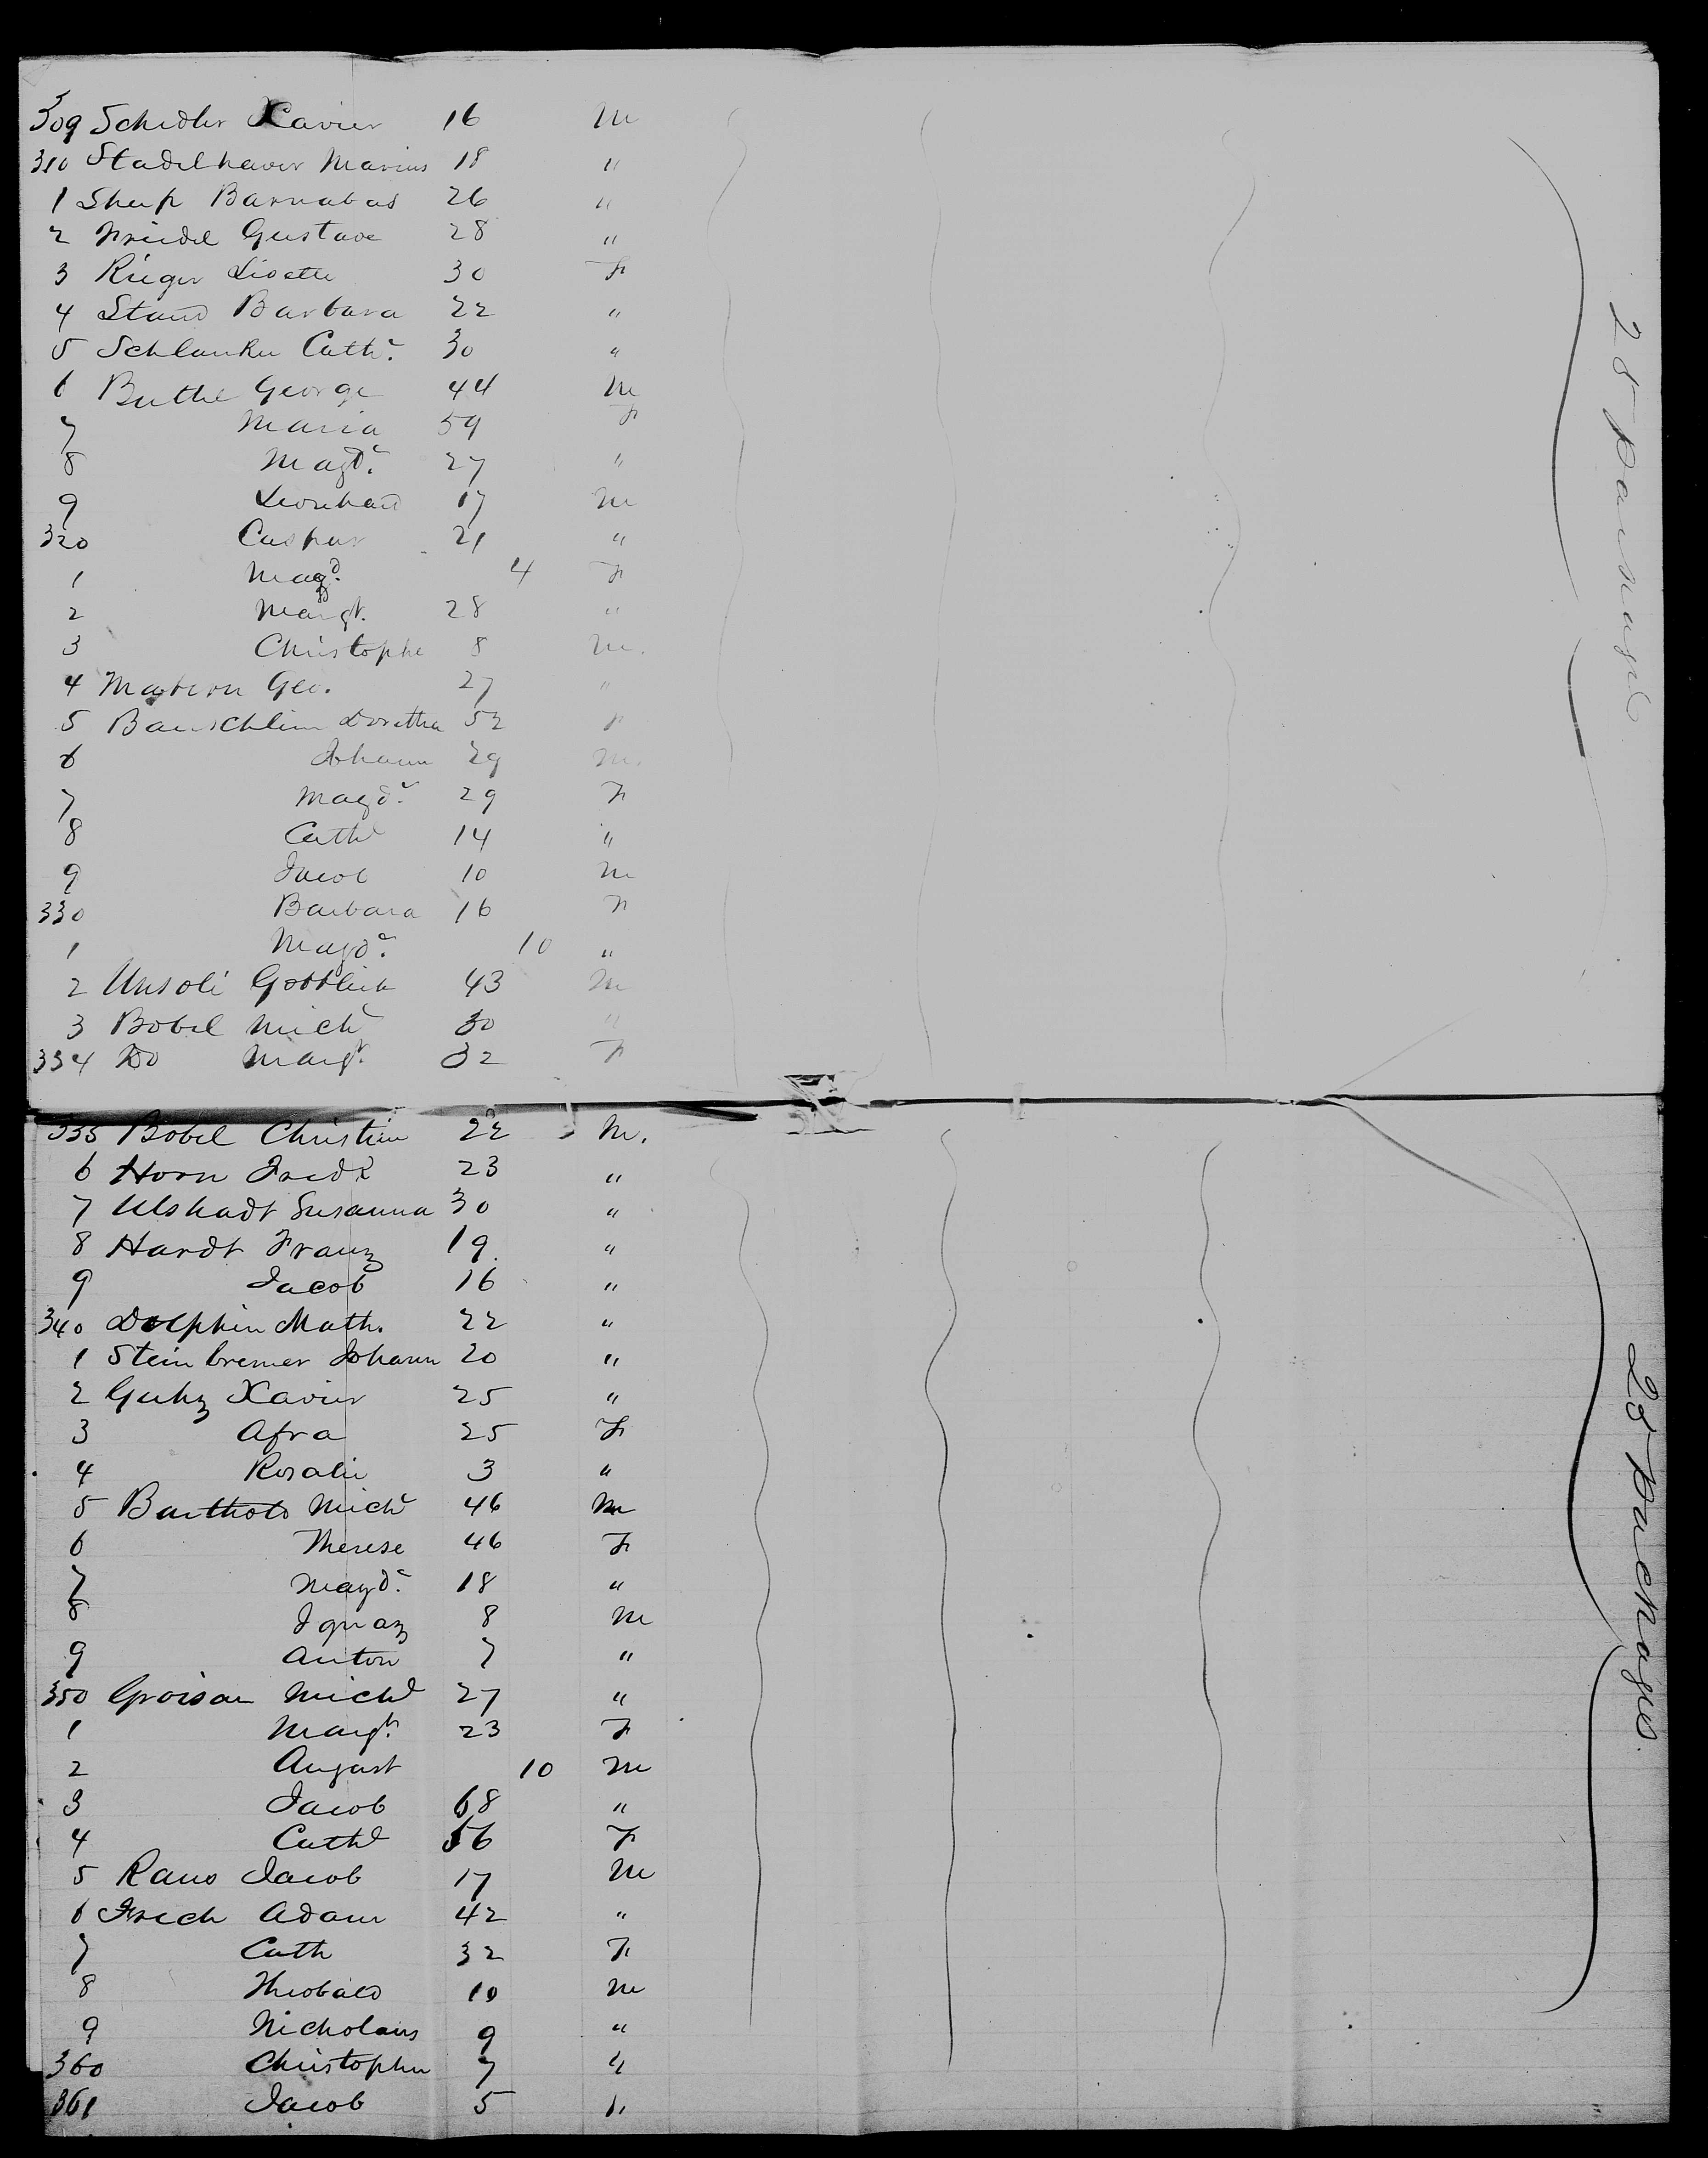 309 Schidler Xavier 16 M
310 Stadelhaver Marius 18 "
1 Shep Barnabas 26 "
2 Friedel Gustave 28 "
3 Rieger Lisette 30 F
4 Staud Barbara 22 "
5 Schlanker Cathe. 30 "
6 Buthe George 44 M
7 Maria 59 F
8 Magde. 27 "
9 Leonhard 17 M
320 Caspar 21 "
1 Magd. 4 F
2 Margt. 28 "
3 Christophe 8 M.
4 Matern Geo. 27 "
5 Bauschlim Doretha 52 F
6 Johann 29 M.
7 Magde. 29 F
8 Cathe 14 "
9 Jacob 10 M
330 Barbara 16 F
1 Magde. 10 "
2 Unsoli Gottlieb 43 M
3 Bobel Michl 30 "
334 Do Margt. 32 F
28 packages
335 Bobel Christian 22 M.
6 Horn Fredk 23 "
7 Ulshadt Susanna 30 "
8 Hardt Franz 19 "
9 Jacob 16 "
340 Dolphin Math. 22 "
1 Steinbremer Johann 20 "
2 Guhz Xavier 25 "
3 Afra 25 F
4 Rosalie 3 "
5 Barthold Michl 46 M
6 Therese 46 F
7 Magde. 18 "
8 Ignaz 8 M
9 Anton 7 "
350 Groisan Michl 27 "
1 Margt. 23 F
2 August 10 M
3 Jacob 68 "
4 Cathe 56 F
5 Raus Jacob 17 M
6 Frech Adam 42 "
7 Cath 32 F
8 Theobald 10 M
9 Nicholaus 9 "
360 Christophe 7 "
361 Jacob 5 "
28 packages.